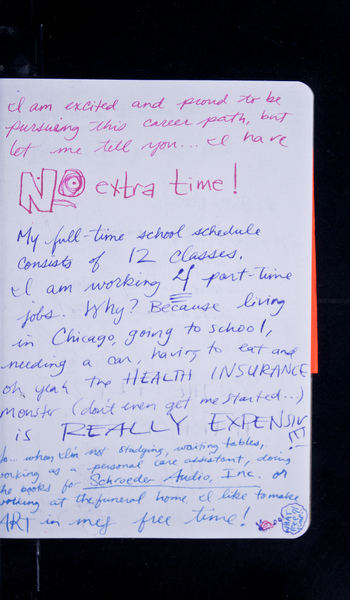 I am excited and proud to be
pursuing this career path, but
let me tell you... I have
NO extra time!
My full-time school schedule
consists of 12 classes.
I am working 4 part-time
jobs. Why? Because living
in Chicago, going to school,
needing a car, having to eat and
oh, yeah the HEALTH INSURANCE
monster (don't even get me started...)
is REALLY EXPENSIVE!
So... when I'm not studying, waiting tables,
working as a personal care assistant, doing
the books for Schroeder Audio, Inc. or
working at the funeral home I like to make
ART in my free time!
WHAT FREE TIME?